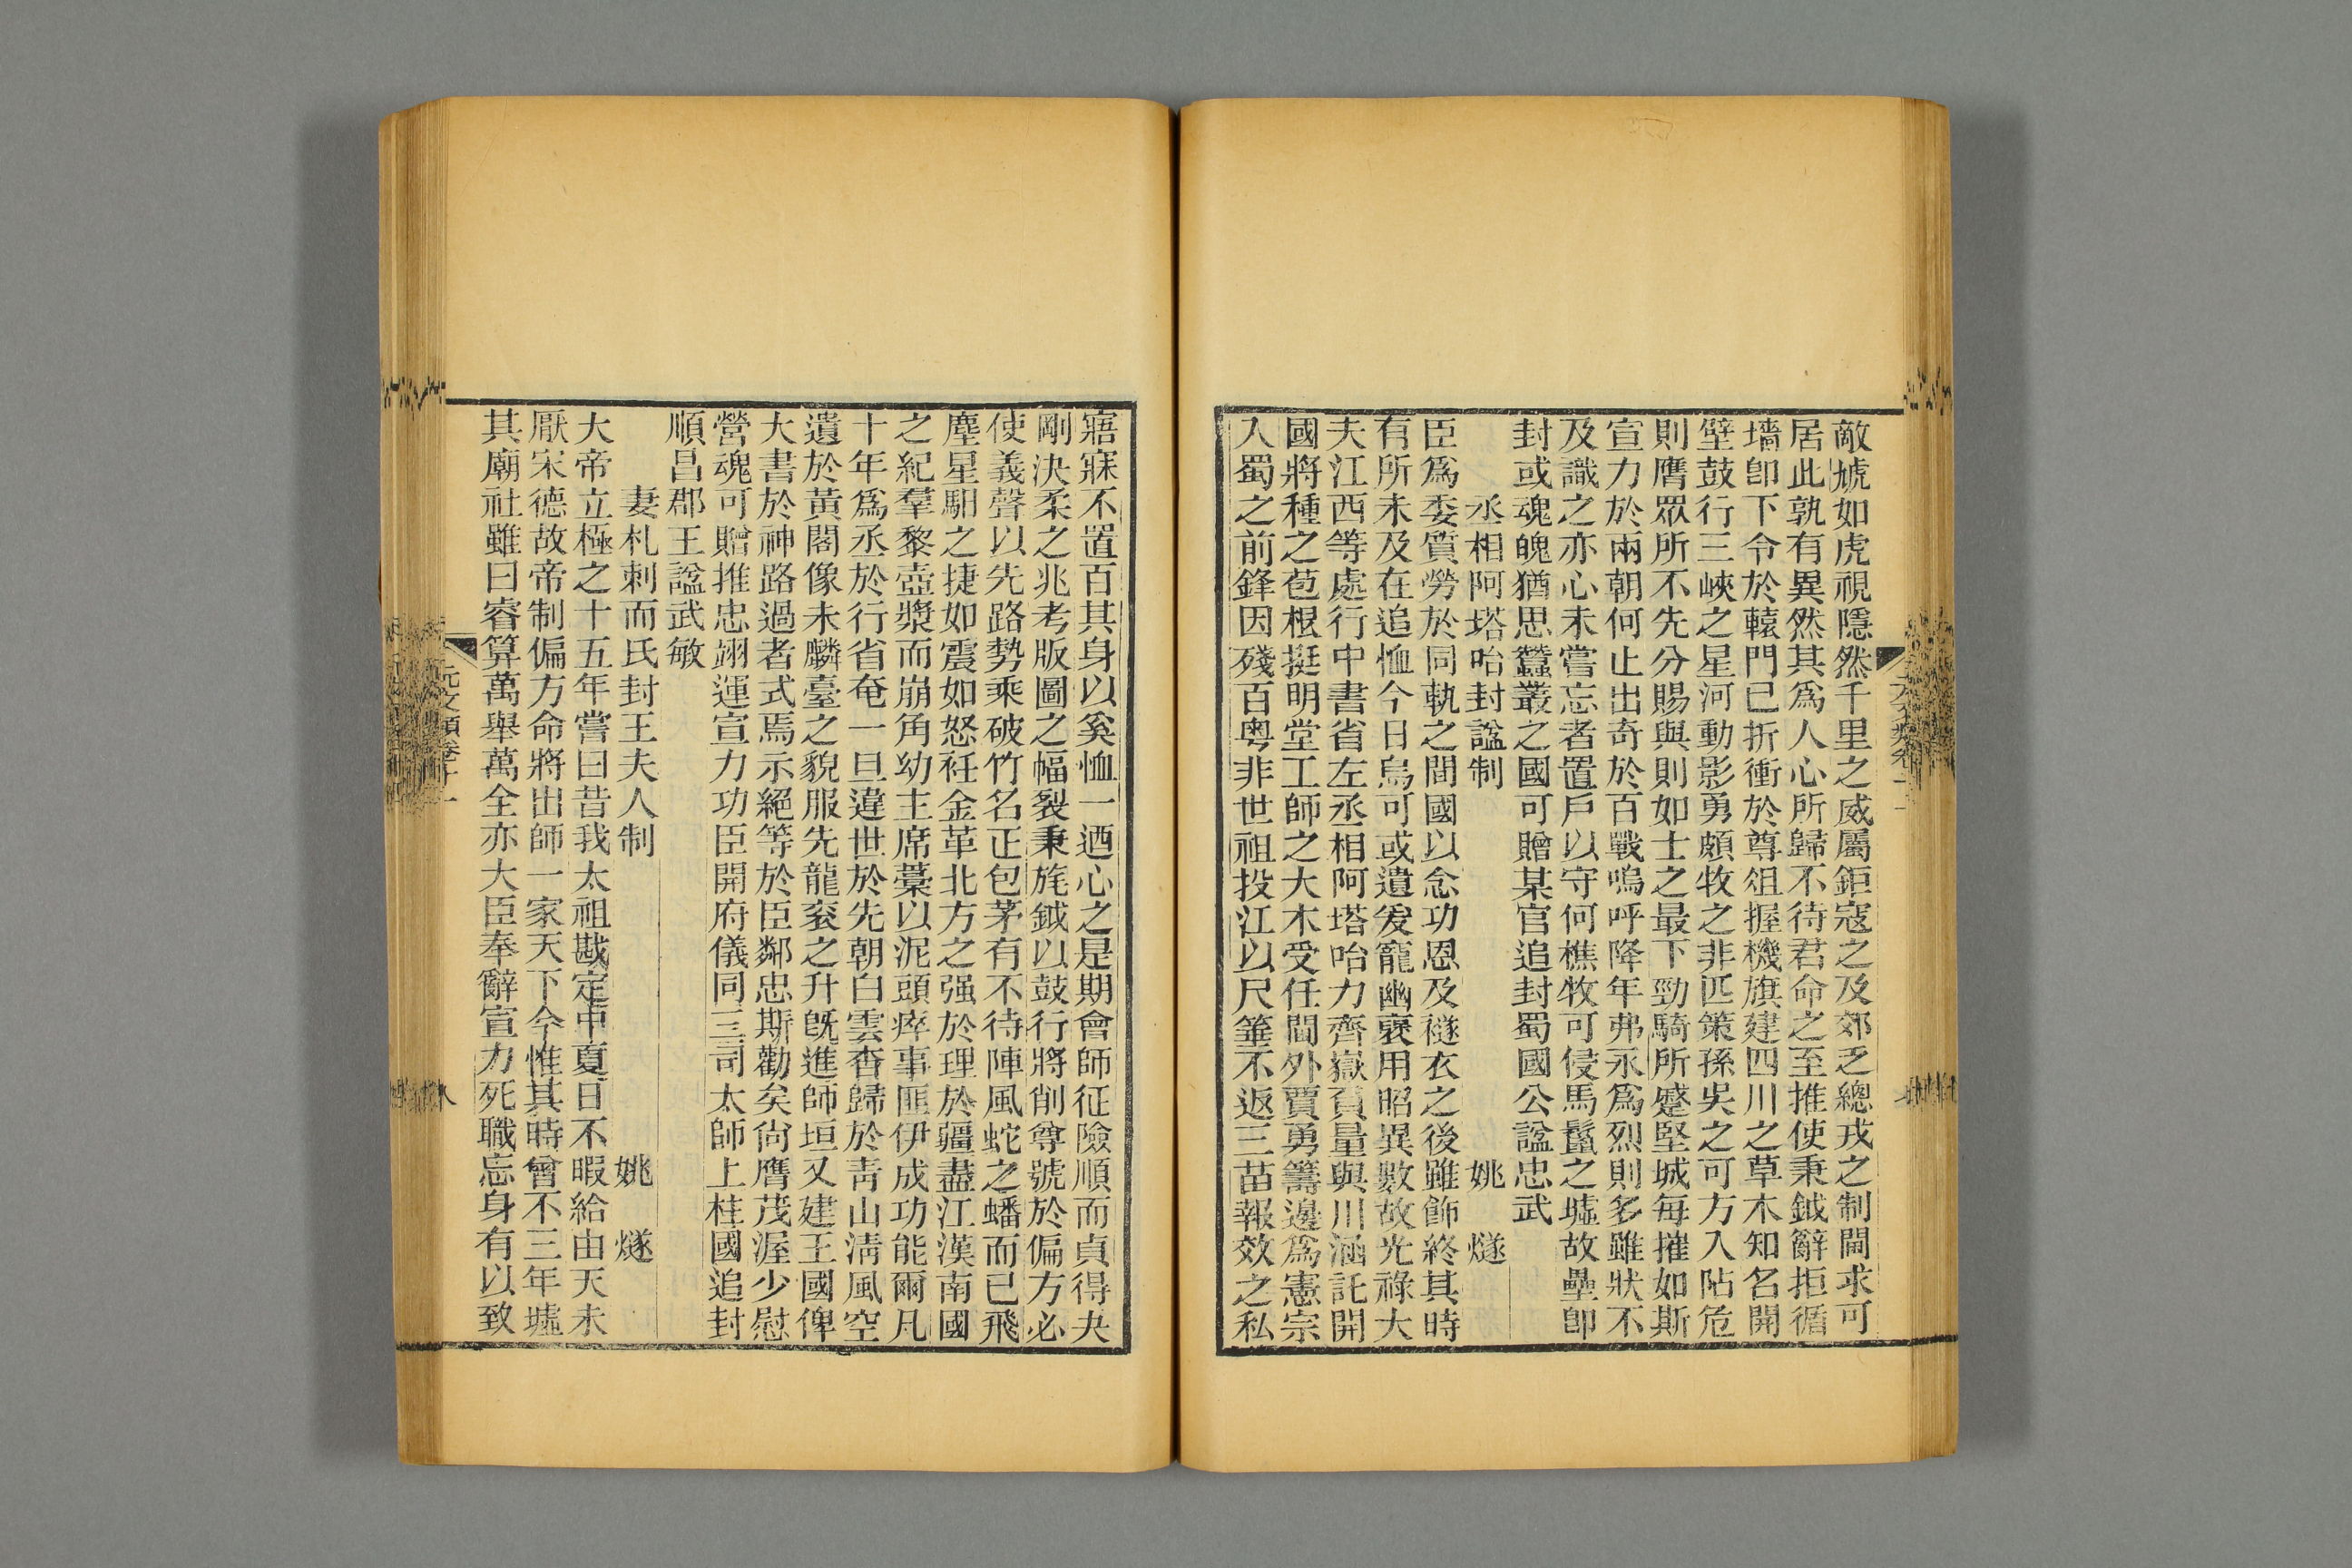 敵虓如虎視隱然千里之威屬鉅寇之及郊乏總戎之制閫求可
居此孰有異然其爲人心所歸不待君命之至推使秉鉞辭拒循
墻卽下令於轅門已折衝於尊俎握機旗建四川之草木知名開
壁鼓行三峽之星河動影勇頗牧之非匹策孫吳之可方入阽危
則膺眾所不先分賜與則如士之最下勁騎所蹙堅城每摧如斯
宣力於兩朝何止出奇於百戰嗚呼降年弗永爲烈則多雖狀不
及識之亦心未嘗忘者置戶以守何樵牧可侵馬鬣之墟故壘卽
封或魂魄猶思蠶叢之國可贈某官追封蜀國公諡忠武
丞相阿塔哈封諡制 姚燧
臣爲委質勞於同軌之間國以念功恩及襚衣之後雖飾終其時
有所未及在追恤今日烏可或遺爰寵幽襃用昭異數故光祿大
夫江西等處行中書省左丞相阿塔哈力齊嶽負量與川涵託開
國將種之苞根挺明堂工師之大木受任閫外賈勇籌邊爲憲宗
入蜀之前鋒因殘百粵非世祖投江以尺箠不返三苗報效之私
寤寐不置百其身以奚恤一迺心之是期會師征險順而貞得夬
剛決柔之兆考版圖之幅裂秉旄鉞以鼓行將削尊號於偏方必
使義聲以先路勢乘破竹名正包茅有不待陣風蛇之蟠而已飛
塵星馹之捷如震如怒衽金革北方之强於理於疆盡江漢南國
之紀羣黎壺漿而崩角幼主席藁以泥頭瘁事匪伊成功能爾凡
十年爲丞於行省奄一旦違世於先朝白雲杳歸於靑山淸風空
遺於黃閣像未麟臺之貌服先龍衮之升旣進師垣又建王國俾
大書於神路過者式焉示絕等於臣鄰忠斯勸矣尙膺茂渥少慰
營魂可贈推忠翊運宣力功臣開府儀同三司太師上柱國追封
順昌郡王諡武敏
妻札剌而氏封王夫人制 姚燧
大帝立極之十五年嘗曰昔我太祖戡定中夏日不暇給由天未
厭宋德故帝制偏方命將出師一家天下今惟其時曾不三年墟
其廟社雖曰睿算萬舉萬全亦大臣奉辭宣力死職忘身有以致